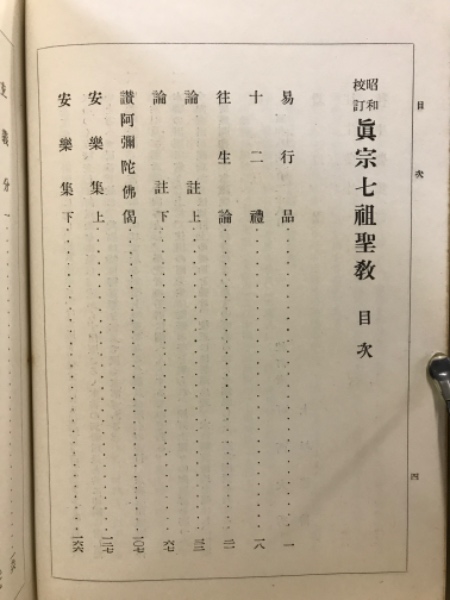 目次
昭和校訂 眞宗七祖聖教 目次
易行品 一
十二禮 一八
往生論 二一
論註上 三三
論註下 六七
讃阿彌陀佛偈 一〇七
安樂集上 一二七
安樂集下 一六六
四
義分一